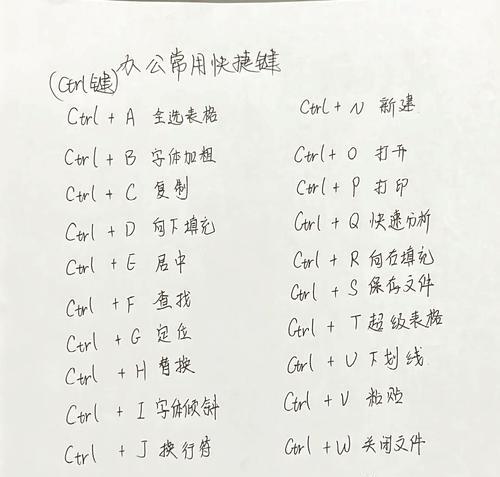 (Ctrl键)办公常用快捷键
Ctrl + A 全选表格
Ctrl + B 字体加粗
Ctrl + C 复制
Ctrl + D 向下填充
Ctrl + E 居中
Ctrl + F 查找
Ctrl + G 定位
Ctrl + H 替换
Ctrl + I 字体倾斜
Ctrl + J 换行符
Ctrl + N 新建
Ctrl + O 打开
Ctrl + P 打印
Ctrl + Q 快速分析
Ctrl + R 向右填充
Ctrl + S 保存文件
Ctrl + T 超级表格
Ctrl + U 下划线
Ctrl + V 粘贴
Ctrl + W 关闭文件